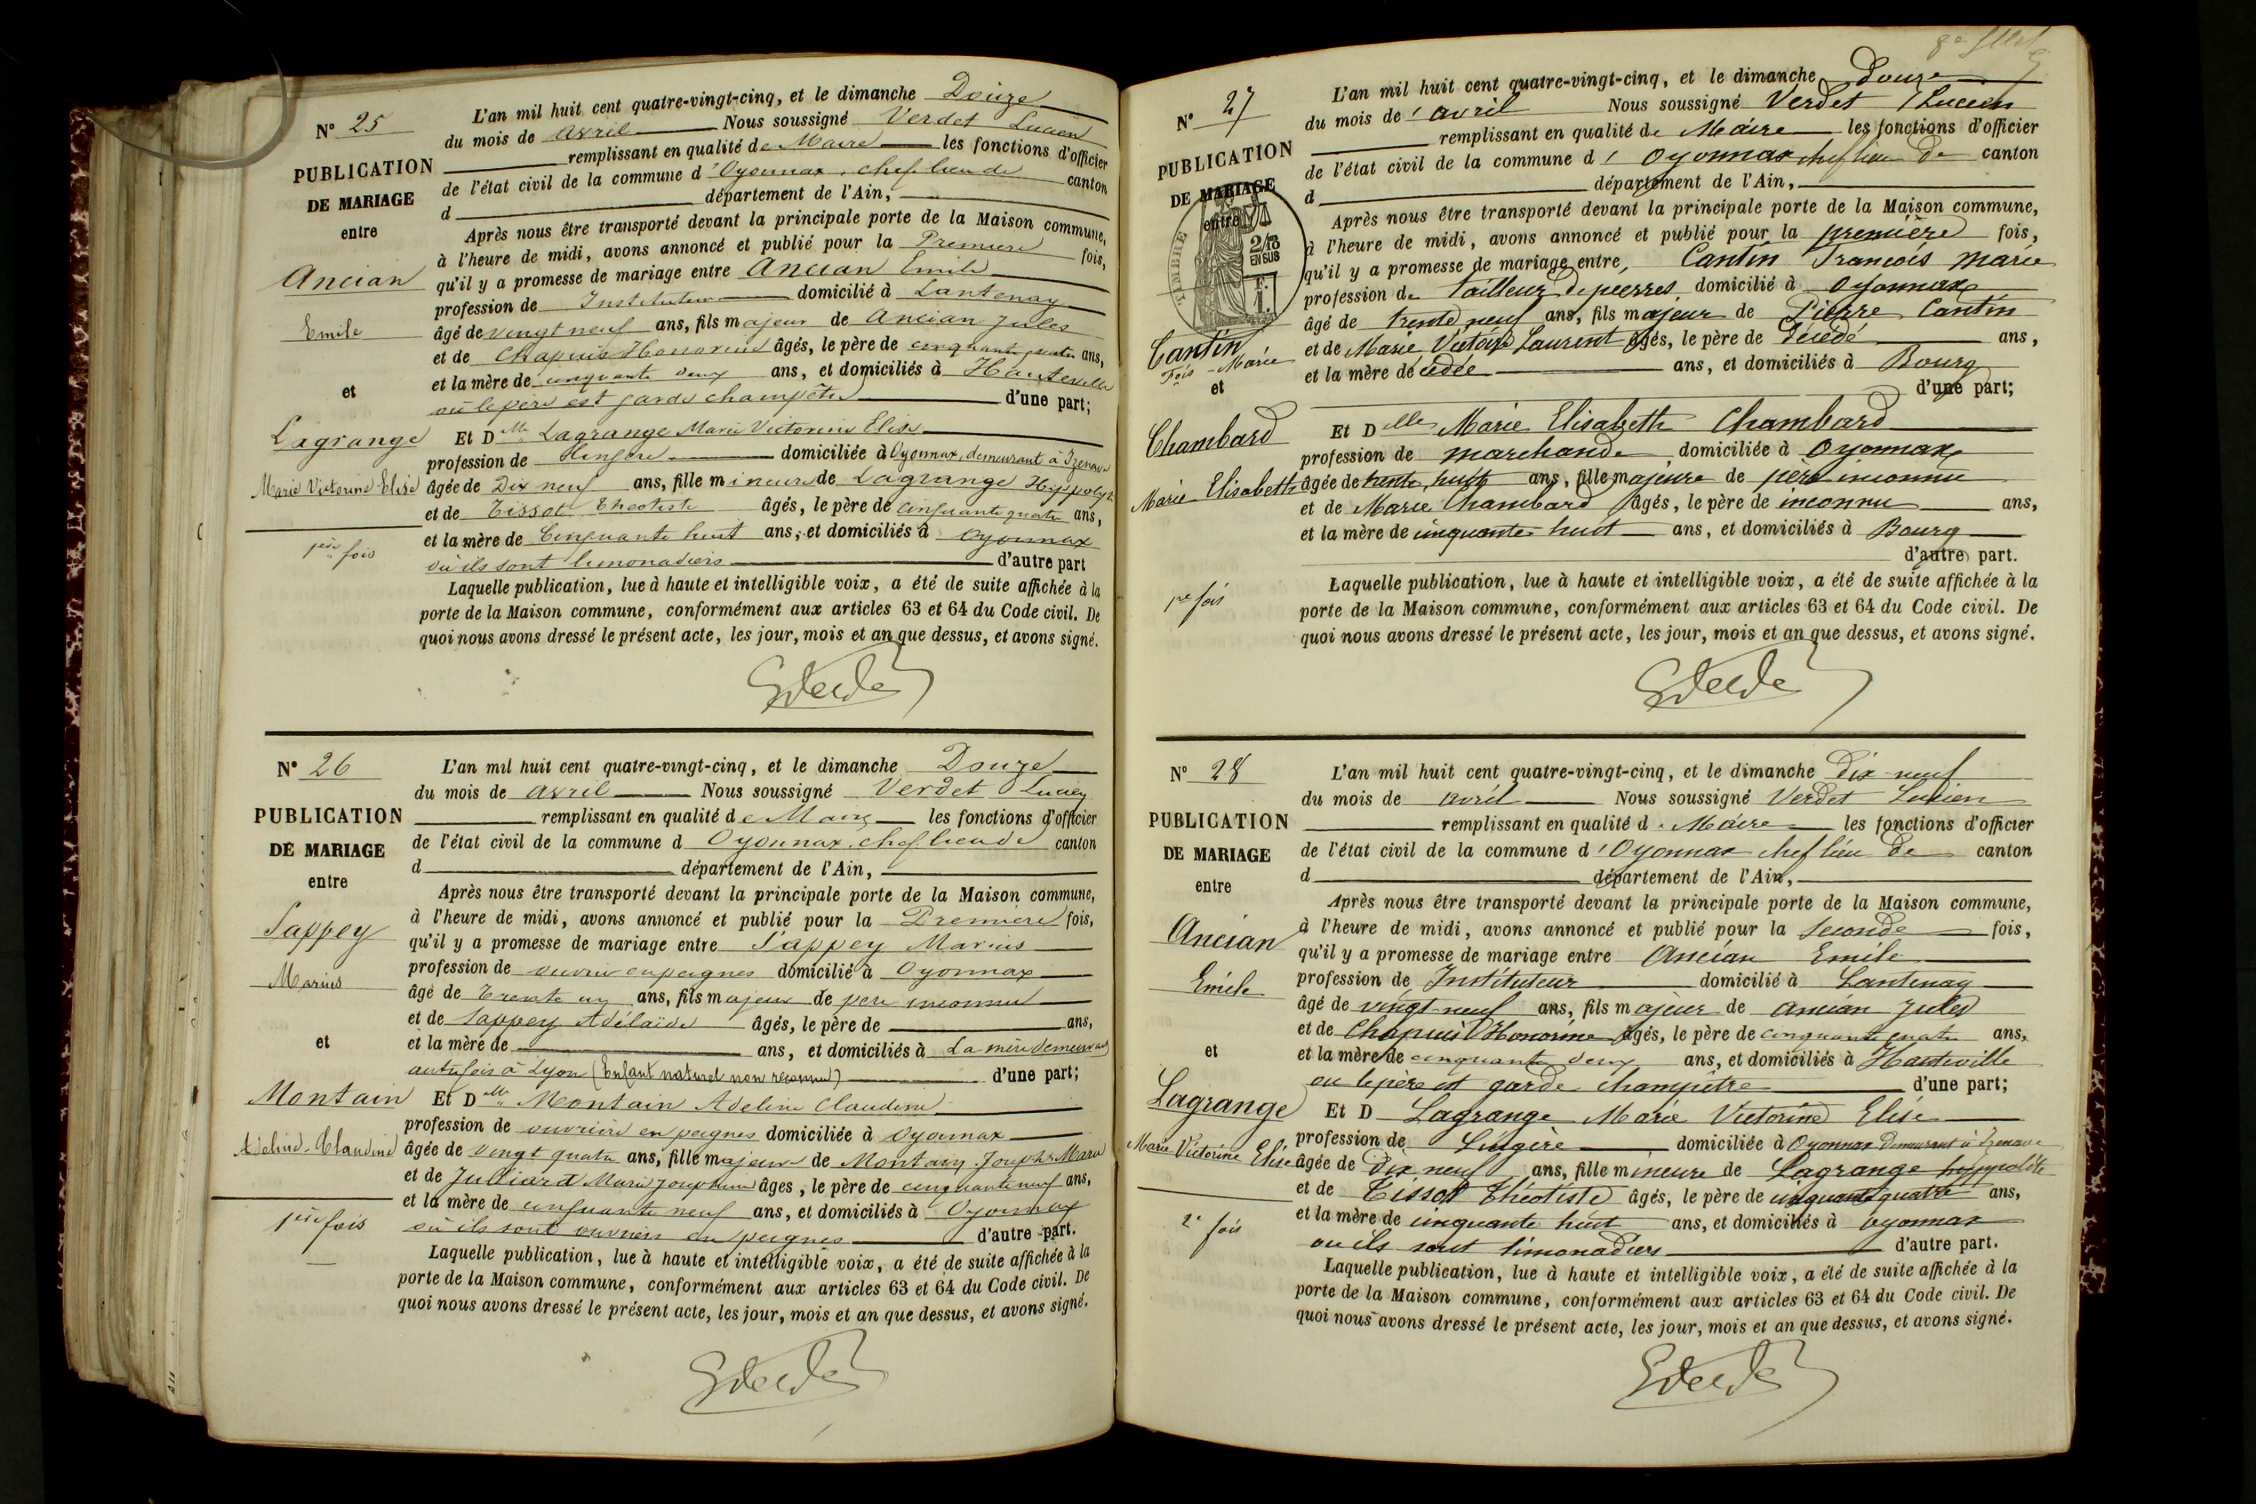 N° 25
PUBLICATION
DE MARIAGE
entre
Ancian
Emile
et
Lagrange
Marie Victorine Elise
1ère fois
L'an mil huit cent quatre-vingt-cinq, et le dimanche Douze
du mois de avril Nous soussigné Verdet Lucien
remplissant en qualité de Maire les fonctions d'officier
de l'état civil de la commune d'Oyonnax, chef lieu de canton
d département de l'Ain,
Après nous être transporté devant la principale porte de la Maison commune,
à l'heure de midi, avons annoncé et publié pour la Première fois,
qu'il y a promesse de mariage entre Ancian Emile
profession de Instituteur domicilié à Lantenay
âgé de vingt neuf ans, fils majeur de Ancian Jules
et de Chapuis Honorine âgés, le père de cinquante quatre ans,
et la mère de cinquante deux ans, et domiciliés à Hauteville
où le père est garde champêtre d'une part;
Et D Mlle Lagrange Marie Victorine Elise
profession de Lingère domiciliée à Oyonnax, demeurant à Izenave
âgée de Dix neuf ans, fille mineure de Lagrange Hyppolyte
et de Tissot Theotiste âgés, le père de cinquante quatre ans,
et la mère de Cinquante huit ans, et domiciliés à Oyonnax
où ils sont limonadiers d'autre part
Laquelle publication, lue à haute et intelligible voix, a été de suite affichée à la
porte de la Maison commune, conformément aux articles 63 et 64 du Code civil. De
quoi nous avons dressé le présent acte, les jour, mois et an que dessus, et avons signé.
N° 26
PUBLICATION
DE MARIAGE
entre
Sappey
Marius
et
Montain
Adeline-Claudine
1ère fois
L'an mil huit cent quatre-vingt-cinq, et le dimanche Douze
du mois de avril Nous soussigné Verdet Lucien
remplissant en qualité de Maire les fonctions d'officier
de l'état civil de la commune d Oyonnax, chef lieu de canton
d département de l'Ain,
Après nous être transporté devant la principale porte de la Maison commune,
à l'heure de midi, avons annoncé et publié pour la Première fois,
qu'il y a promesse de mariage entre Sappey Marius
profession de ouvrier en peignes domicilié à Oyonnax
âgé de Trente un ans, fils majeur de père inconnu
et de Sappey Adélaïde âgés, le père de ans,
et la mère de ans, et domiciliés à La mère demeurant
autrefois à Lyon (Enfant naturel non reconnu) d'une part;
Et D elle Montain Adeline Claudine
profession de ouvrière en peignes domiciliée à Oyonnax
âgée de vingt quatre ans, fille majeure de Montain Joseph Marie
et de Julliard Marie Josephine âgés, le père de cinquante neuf ans,
et la mère de cinquante neuf ans, et domiciliés à Oyonnax
où ils sont ouvriers en peignes d'autre part.
Laquelle publication, lue à haute et intelligible voix, a été de suite affichée à la
porte de la Maison commune, conformément aux articles 63 et 64 du Code civil. De
quoi nous avons dressé le présent acte, les jour, mois et an que dessus, et avons signé.
N° 27
PUBLICATION
DE MARIAGE
entre
TIMBRE
2/10
EN SUS
Cantin
Fçois-Marie
et
Chambard
Marie Elisabeth
1re fois
L'an mil huit cent quatre-vingt-cinq, et le dimanche Douze
du mois de avril Nous soussigné Verdet Lucien
remplissant en qualité de Maire les fonctions d'officier
de l'état civil de la commune d'Oyonnax chef lieu de canton
d département de l'Ain,
Après nous être transporté devant la principale porte de la Maison commune,
à l'heure de midi, avons annoncé et publié pour la première fois,
qu'il y a promesse de mariage entre, Cantin François Marie
profession de Tailleur de pierres domicilié à Oyonnax
âgé de trente neuf ans, fils majeur de Pierre Cantin
et de Marie Victoire Laurent âgés, le père de décédé ans,
et la mère décédée ans, et domiciliés à Bourg
d'une part;
Et D elle Marie Elisabeth Chambard
profession de marchande domiciliée à Oyonnax
âgée de trente huit ans, fille majeure de père inconnu
et de Marie Chambard âgés, le père de inconnu ans,
et la mère de cinquante huit ans, et domiciliés à Bourg
d'autre part.
Laquelle publication, lue à haute et intelligible voix, a été de suite affichée à la
porte de la Maison commune, conformément aux articles 63 et 64 du Code civil. De
quoi nous avons dressé le présent acte, les jour, mois et an que dessus, et avons signé.
N° 28
PUBLICATION
DE MARIAGE
entre
Ancian
Emile
et
Lagrange
Marie Victorine Elise
2e fois
L'an mil huit cent quatre-vingt-cinq, et le dimanche Dix-neuf
du mois de avril Nous soussigné Verdet Lucien
remplissant en qualité de Maire les fonctions d'officier
de l'état civil de la commune d'Oyonnax chef lieu de canton
d département de l'Ain,
Après nous être transporté devant la principale porte de la Maison commune,
à l'heure de midi, avons annoncé et publié pour la seconde fois,
qu'il y a promesse de mariage entre Ancian Emile
profession de Instituteur domicilié à Lantenay
âgé de vingt-neuf ans, fils majeur de Ancian Jules
et de Chapuis Honorine âgés, le père de cinquante quatre ans,
et la mère de cinquante deux ans, et domiciliés à Hauteville
ou le père est garde champêtre d'une part;
Et D Lagrange Marie Victorine Elise
profession de Lingère domiciliée à Oyonnax Demeurant à Izenave
âgée de dix neuf ans, fille mineure de Lagrange hippolite
et de Tissot Théotiste âgés, le père de cinquante quatre ans,
et la mère de cinquante huit ans, et domiciliés à Oyonnax
ou ils sont limonadiers d'autre part.
Laquelle publication, lue à haute et intelligible voix, a été de suite affichée à la
porte de la Maison commune, conformément aux articles 63 et 64 du Code civil. De
quoi nous avons dressé le présent acte, les jour, mois et an que dessus, et avons signé.